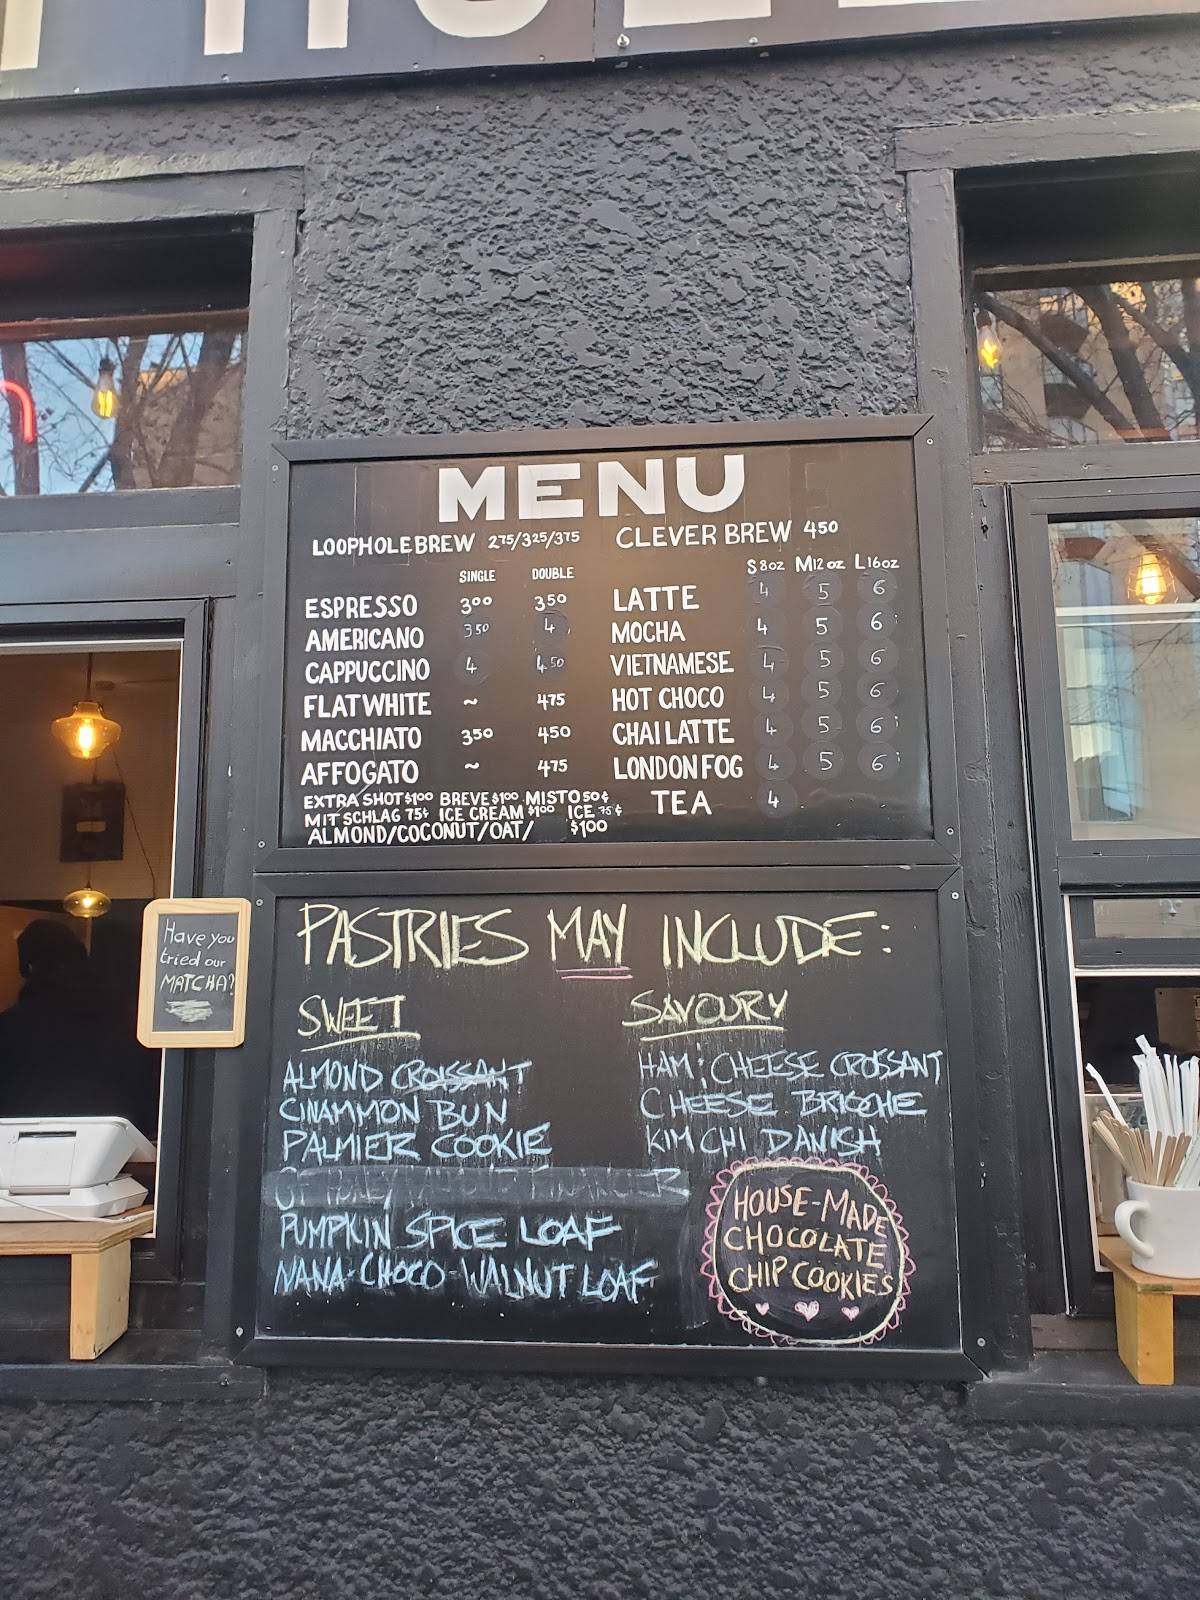 MENU
LOOPHOLE BREW 275/325/375 CLEVER BREW 450
SINGLE DOUBLE
ESPRESSO 300 350
AMERICANO 350 4
CAPPUCCINO 4 4.50
FLAT WHITE ~ 475
MACCHIATO 350 450
AFFOGATO ~ 475
EXTRA SHOT $100 BREVE $1.00 MISTO 50¢
MIT SCHLAG 75¢ ICE CREAM $1.00 ICE 75¢
ALMOND/COCONUT/OAT/ $1.00
S 8oz M 12oz L 16oz
LATTE 4 5 6
MOCHA 4 5 6
VIETNAMESE 4 5 6
HOT CHOCO 4 5 6
CHAI LATTE 4 5 6
LONDON FOG 4 5 6
TEA 4
Have you
tried our
MATCHA?
PASTRIES MAY INCLUDE:
SWEET
ALMOND CROISSANT
CINAMMON BUN
PALMIER COOKIE
PUMPKIN SPICE LOAF
NANA-CHOCO-WALNUT LOAF
SAVOURY
HAM & CHEESE CROISSANT
CHEESE BRIOCHE
KIM CHI DANISH
HOUSE-MADE
CHOCOLATE
CHIP COOKIES